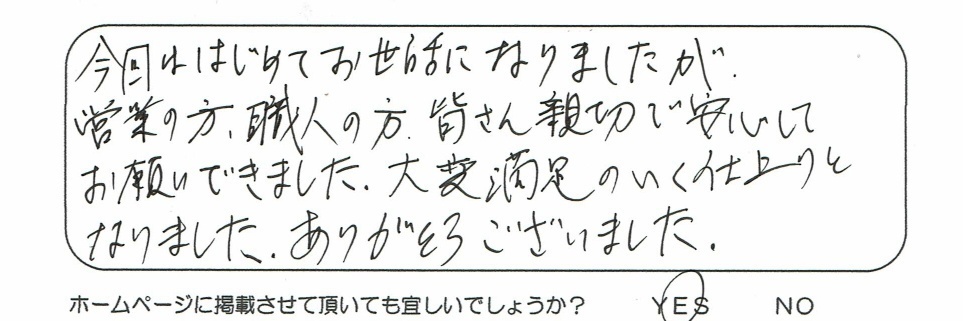 今回ははじめてお世話になりましたが、
営業の方、職人の方、皆さん親切で安心して
お願いできました。大変満足のいく仕上りと
なりました。ありがとうございました。
ホームページに掲載させて頂いても宜しいでしょうか？ YES NO